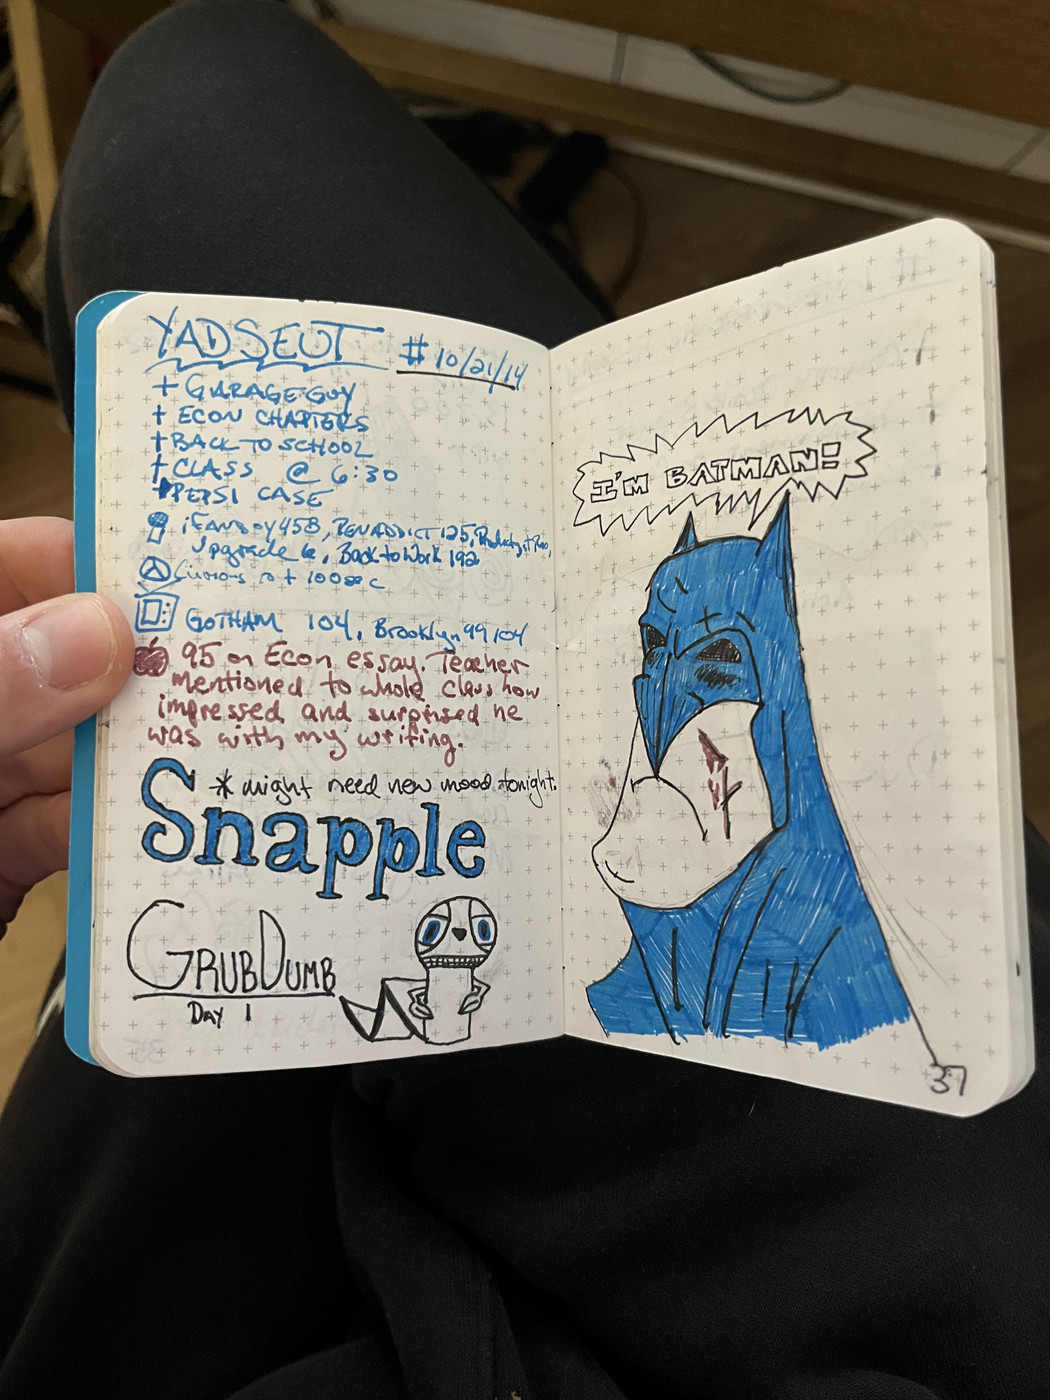 YADSEUT # 10/21/14
+ GARAGE GUY
+ ECON CHAPTERS
+ BACK TO SCHOOL
+ CLASS @ 6:30
+ PEPSI CASE
iFANBOY 458, PENADDICT 125,
Upgrade 6, Back to Work 192
100sec
GOTHAM 104, Brooklyn 99 104
95 on Econ essay. Teacher
mentioned to whole class how
impressed and surprised he
was with my writing.
* might need new mood tonight.
Snapple
GRUBDUMB
Day 1
I'M BATMAN!
37